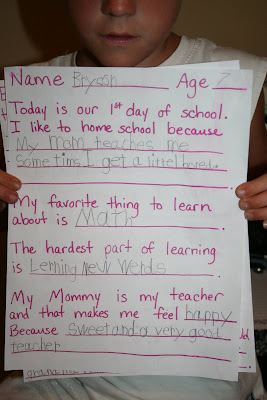 Name Bryson Age 7
Today is our 1st day of school.
I like to home school because
My mom teaches me
Sometims I get a littel bored.
My favorite thing to learn
about is Math
The hardest part of learning
is Lerning New Werds
My Mommy is my teacher
and that makes me feel happy
Because sweet and a very good
teacher